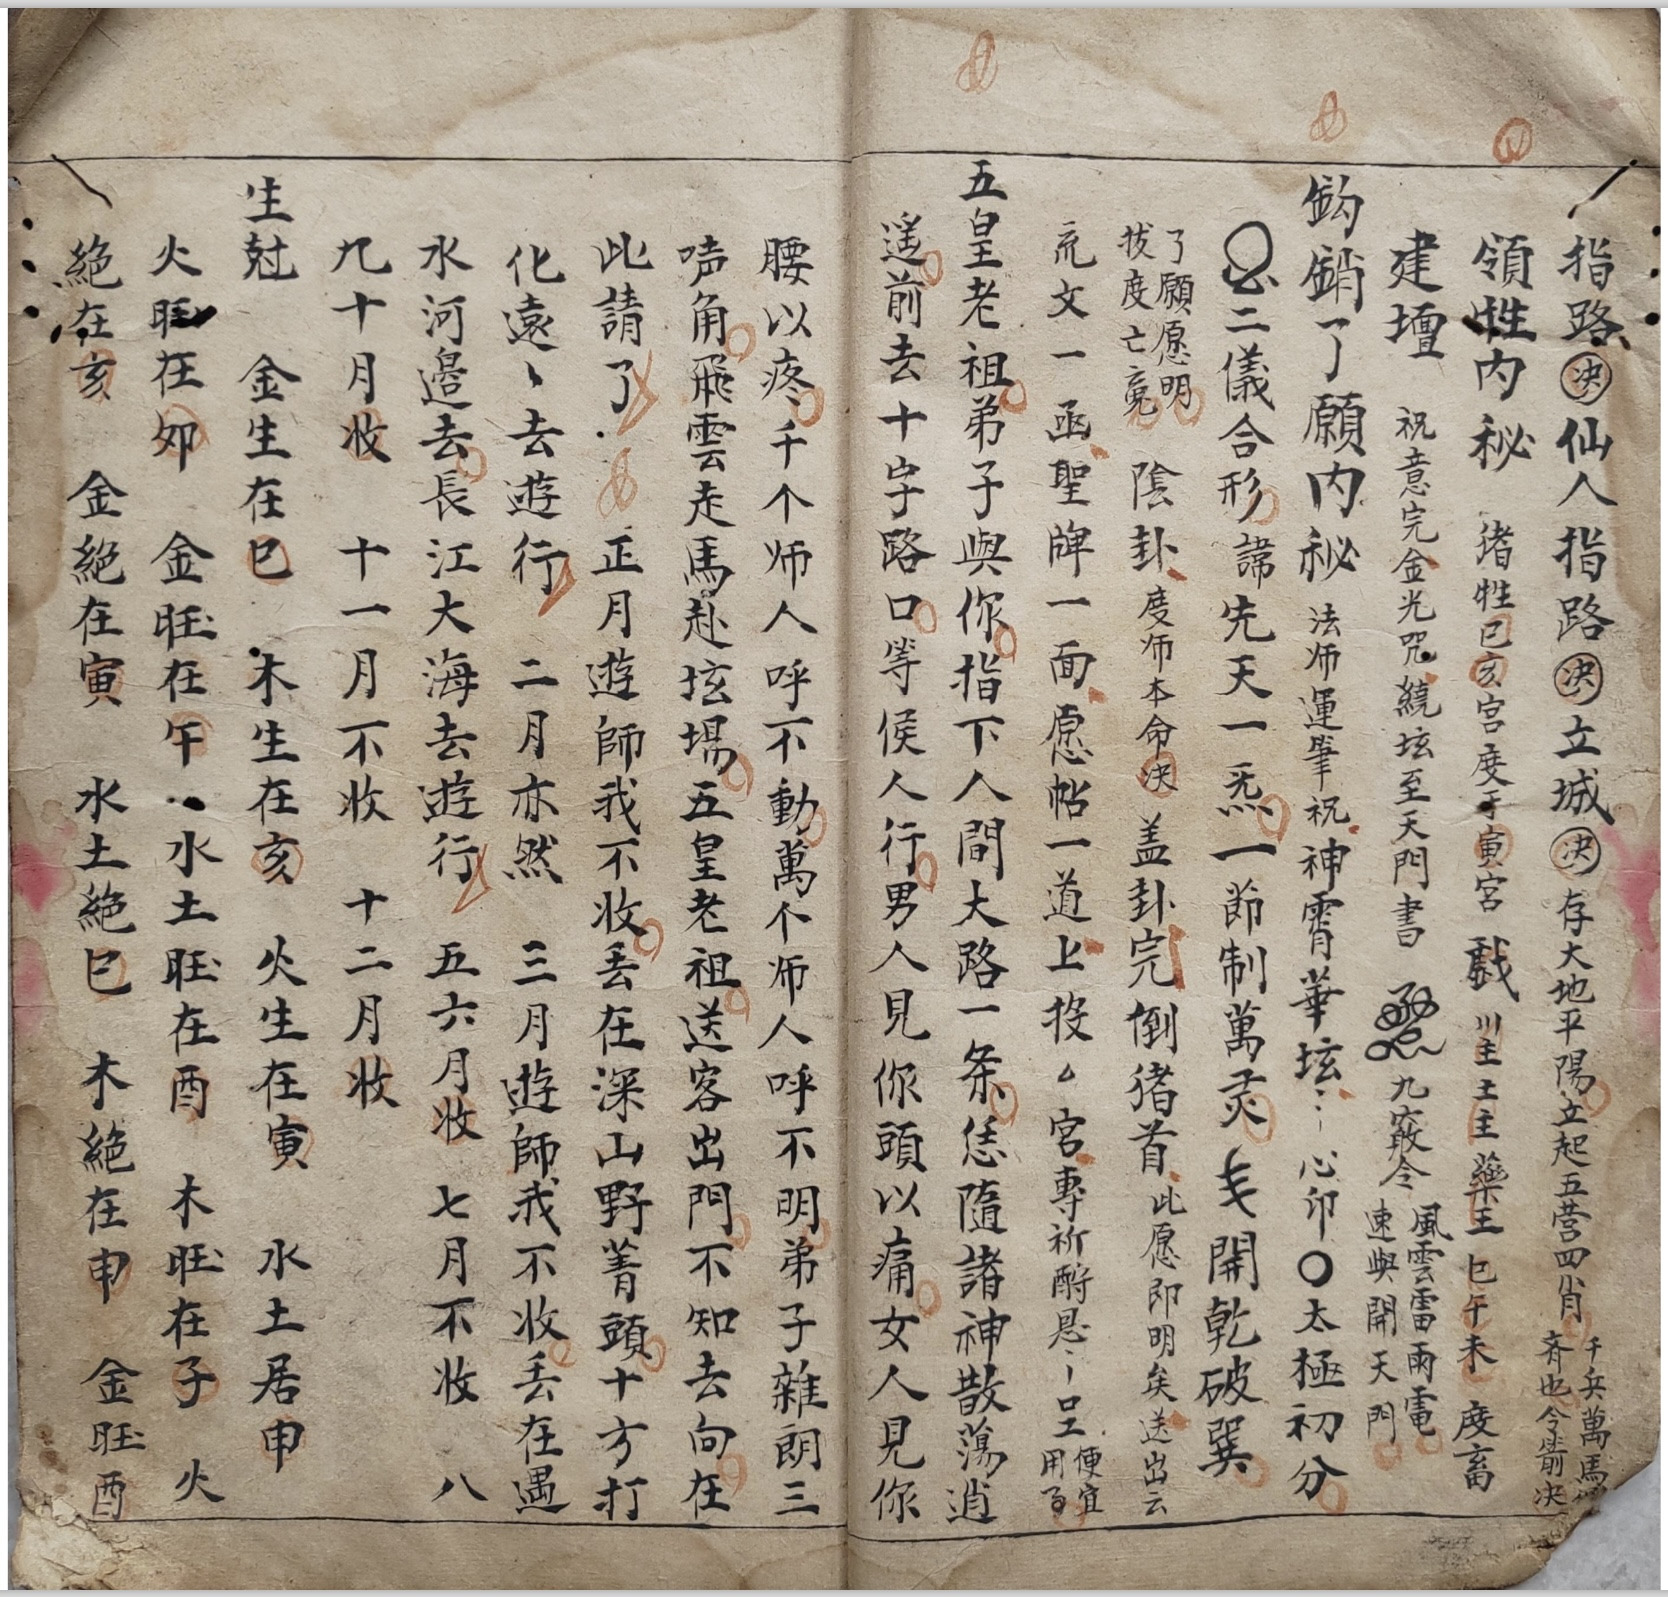 指路決仙人指路決立城決存大地平陽立起五营四肖千兵萬馬齐也令箭决
領牲内秘猪牲巳亥宮度手寅宮戯川主土主藥王巳午未度畜
建壇祝意完金光咒繞坛至天門書九竅令風雲雷雨電速與開天門
鈎銷了願内秘法师運筆祝神霄華坛心卯〇太極初分
二儀合形諱先天一炁一節制萬灵開乾破巽
了願愿明拔度亡竟陰卦度师本命决盖卦完倒猪首此愿即明矣送出云
疏文一函聖牌一面愿帖一道上投厶宮專祈酧恩呈便宜用
五皇老祖弟子與你指下人間大路一条恁隨諸神散蕩逍
遥前去十字路口等侯人行男人見你頭以痛女人見你
腰以疼千个师人呼不動萬个师人呼不明弟子雜朗三
㖓角飛雲走馬赴坛場五皇老祖送客出門不知去向在
此請了正月遊師我不收丢在深山野菁頭十方打
化遠丶去遊行二月亦然三月遊師我不收丢在遇
水河邉去長江大海去遊行五六月收七月不收八
九十月收十一月不收十二月收
生尅金生在巳木生在亥火生在寅水土居申
火旺在夘金旺在午水土旺在酉木旺在子火
絕在亥金絕在寅水土絕巳木絕在申金旺酉